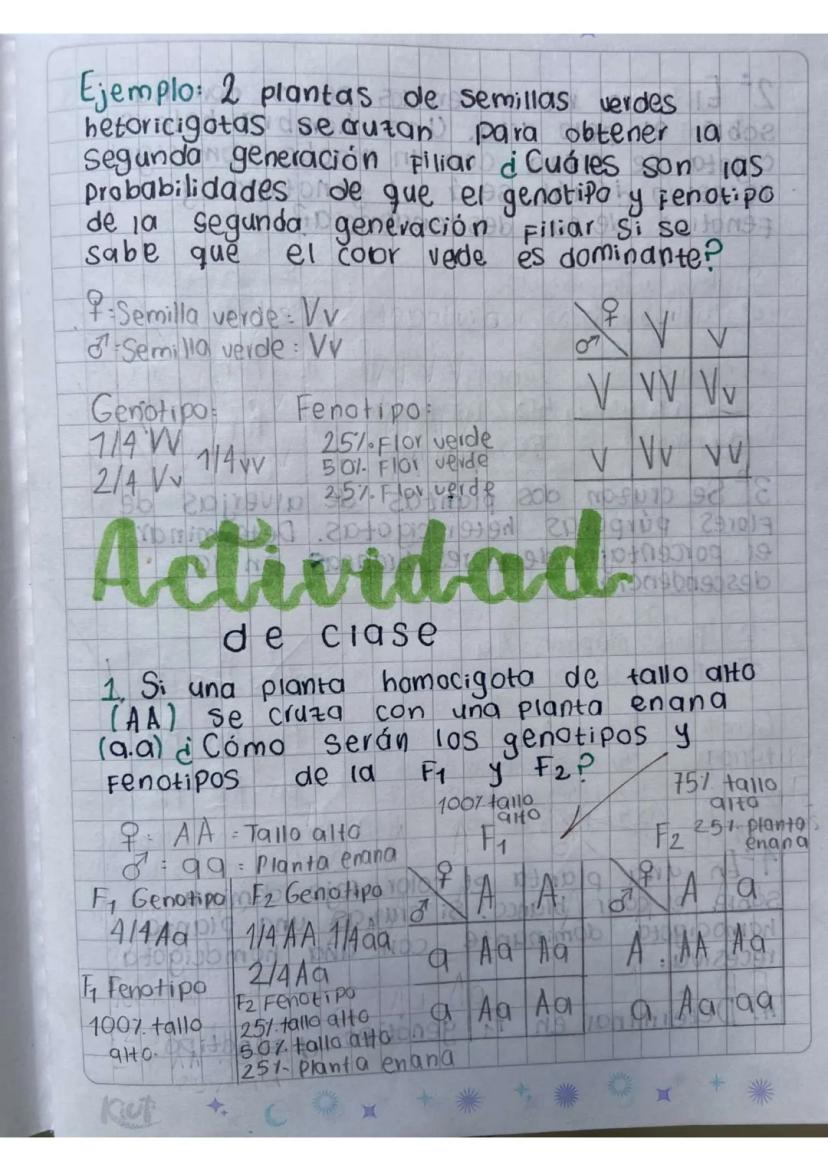 Ejemplo: 2 plantas de semillas verdes
hetoricigotas se cruzan para obtener la
segunda generación filiar ¿Cuáles son las
probabilidades de que el genotipo y fenotipo
de la segunda generación filiar si se
sabe que el color vede es dominante?
♀: Semilla verde: Vv
♂: Semilla verde: Vv
♀ V v
♂
V VV Vv
v Vv vv
Genotipo: Fenotipo:
1/4 VV 1/4 vv 25% Flor verde
2/4 Vv 50% Flor verde
25% Flor verde
Actividad
de clase
1. Si una planta homocigota de tallo alto
(AA) se cruza con una planta enana
(a.a) ¿Cómo serán los genotipos y
fenotipos de la F1 y F2?
100% tallo alto
F1
75% tallo alto
F2 25% planta enana
♀: AA = Tallo alto
♂: aa = Planta enana
F1 Genotipo
4/4 Aa
F1 Fenotipo
100% tallo
alto.
F2 Genotipo
1/4 AA 1/4 aa
2/4 Aa
F2 Fenotipo
25% tallo alto
50% tallo alto
25% Planta enana
♀ A A
♂
a Aa Aa
a Aa Aa
♀ A a
♂
A AA Aa
a Aa aa
Kiut